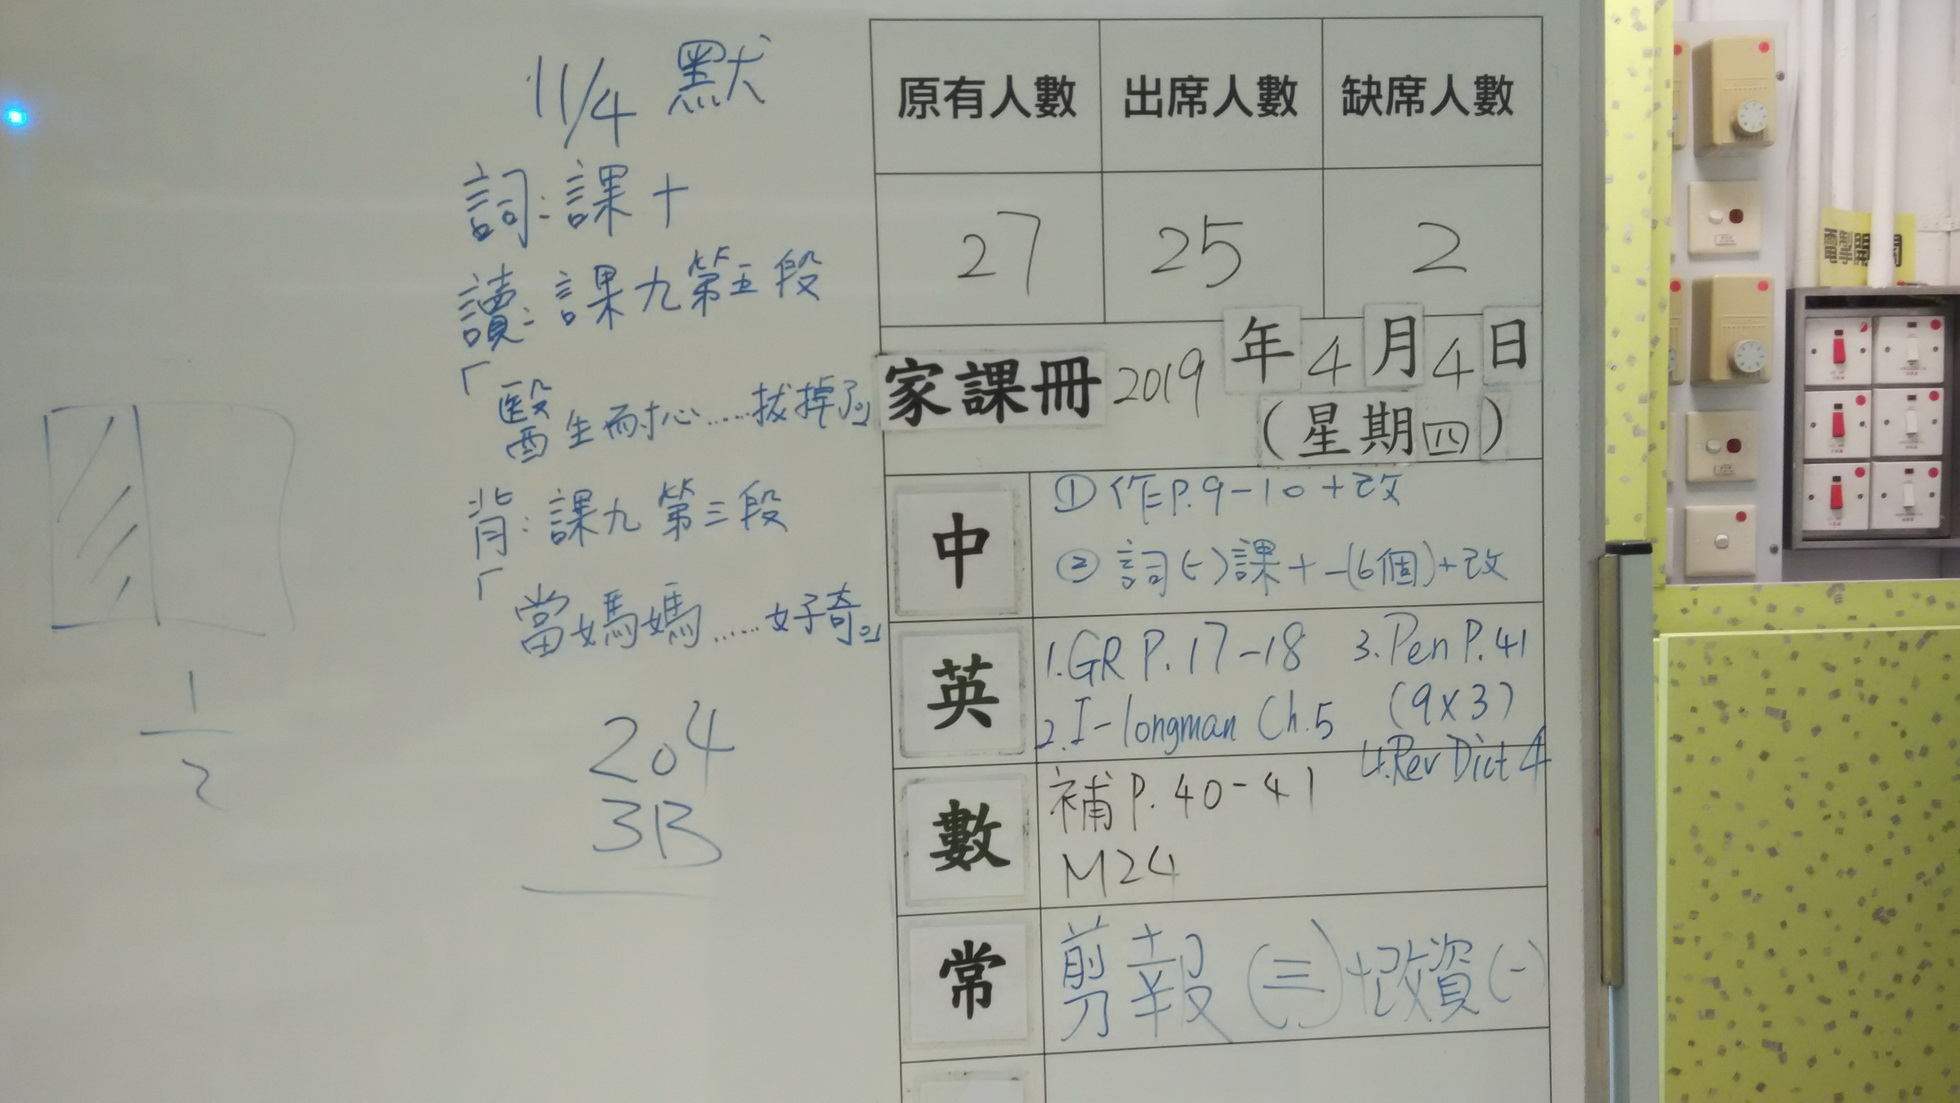 11/4 默
詞:課十
讀:課九第五段
「醫生耐心……拔掉了。」
背:課九第三段
「當媽媽……好奇。」
204
3B
1
2
原有人數 出席人數 缺席人數
27 25 2
家課冊 2019年4月4日
(星期四)
中
①作P.9-10+改
②詞(一)課十一(6個)+改
英
1.GR P.17-18
2.I-longman Ch.5
3.Pen P.41
(9x3)
4.Rev Dict 4
數
補P.40-41
M24
常
剪報(三)+改資(一)